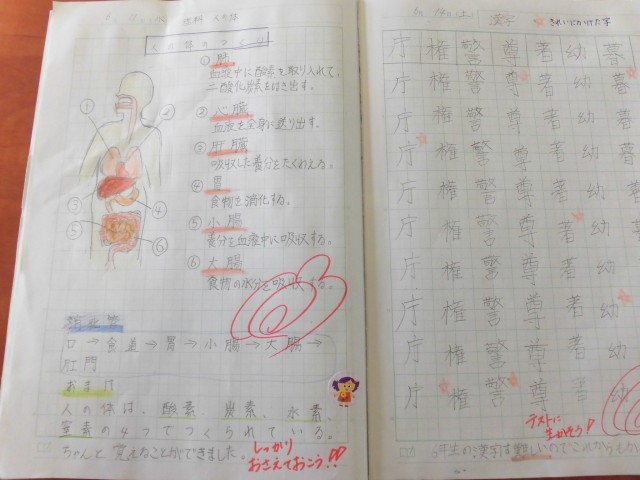 理科 人の体
人の体のつくり
① 肺
血液中に酸素を取り入れて、
二酸化炭素をはき出す。
② 心臓
血液を全身に送り出す。
③ 肝臓
吸収した養分をたくわえる。
④ 胃
食物を消化する。
⑤ 小腸
養分を血液中に吸収する。
⑥ 大腸
食物の水分を吸収する。
①
②
③
④
⑤
⑥
消化管
口→食道→胃→小腸→大腸→
肛門
おまけ
人の体は、酸素、炭素、水素、
窒素の4つでつくられている。
ちゃんと覚えることができました。
しっかり
おさえておこう!!
(土) 漢字 きれいにかけた字
庁 権 警 尊 著 幼 暮
庁 権 警 尊 著 幼 暮
庁 権 警 尊 著 幼 暮
庁 権 警 尊 著 幼 暮
庁 権 警 尊 著 幼
庁 権 警 尊 著 幼
庁 権 警 尊 著 幼
庁 権 警 尊 著 幼
庁 権 警 尊 著 幼
庁 権 警 尊 著 幼
テストに
生かそう!
6年生の漢字は難しいのでこれからも